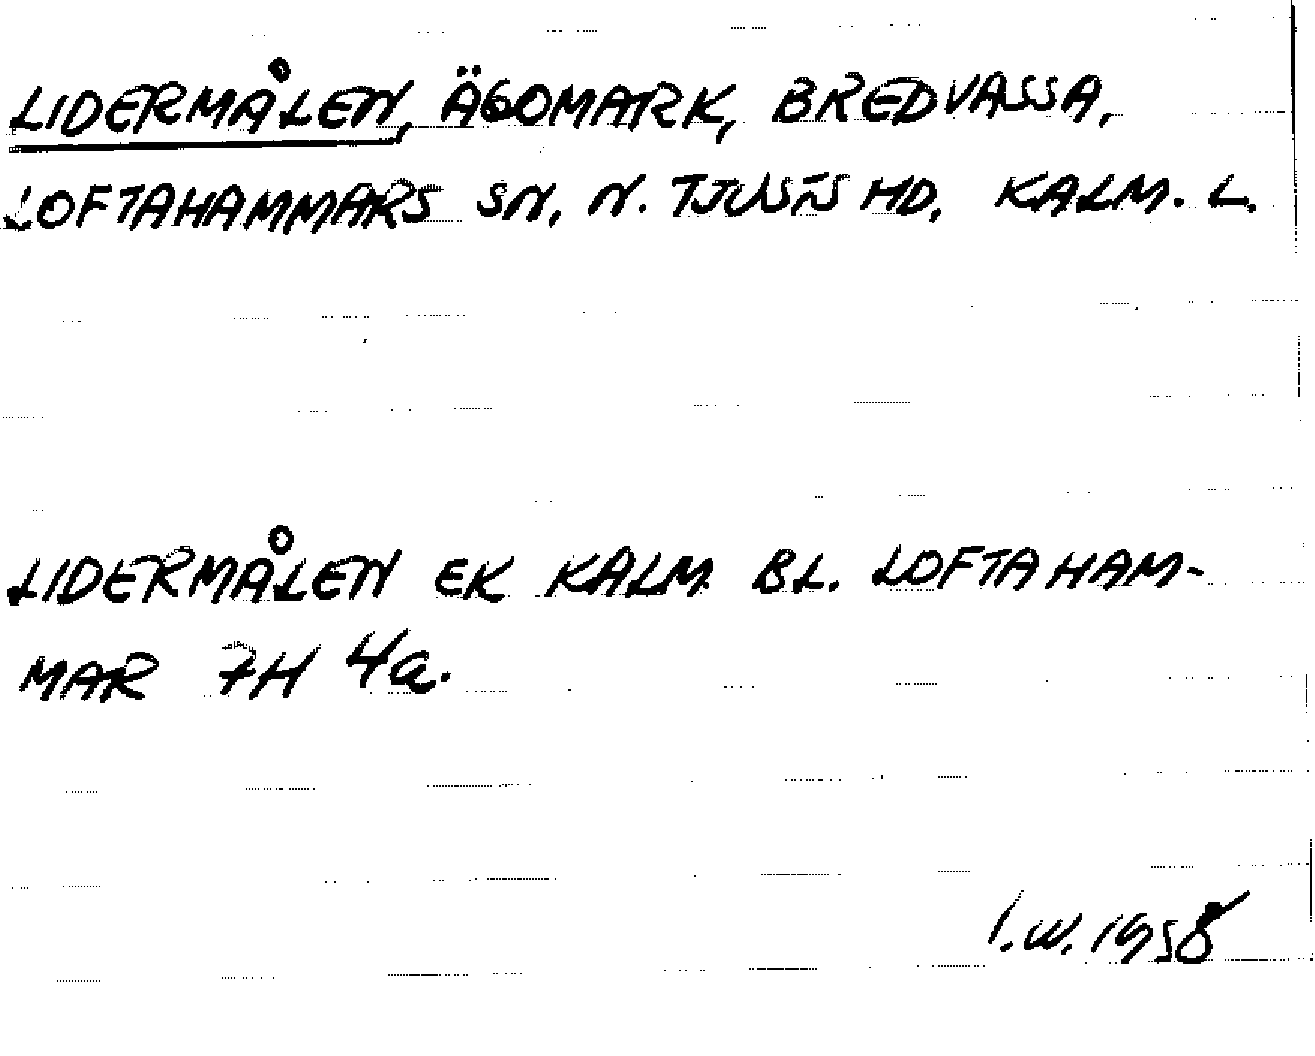 LIDERMÅLEN, ÄGOMARK, BREDVASSA,
LOFTAHAMMARS SN, N. TJUSTS HD, KALM. L.
LIDERMÅLEN EK KALM. BL. LOFTAHAM-
MAR 7H 4a.
I.W. 1958